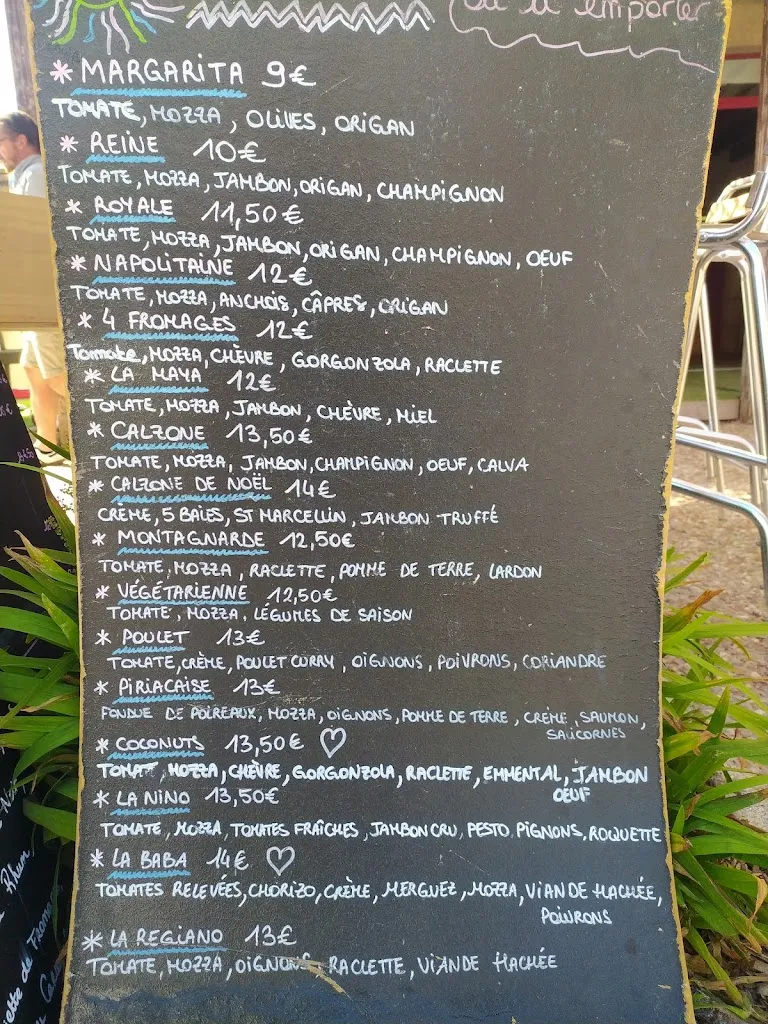 ou à emporter
* MARGARITA 9€
TOMATE, MOZZA, OLIVES, ORIGAN
* REINE 10€
TOMATE, MOZZA, JAMBON, ORIGAN, CHAMPIGNON
* ROYALE 11,50€
TOMATE, MOZZA, JAMBON, ORIGAN, CHAMPIGNON, OEUF
* NAPOLITAINE 12€
TOMATE, MOZZA, ANCHOIS, CÂPRES, ORIGAN
* 4 FROMAGES 12€
Tomate, MOZZA, CHÈVRE, GORGONZOLA, RACLETTE
* LA MAYA 12€
TOMATE, MOZZA, JAMBON, CHÈVRE, MIEL
* CALZONE 13,50€
TOMATE, MOZZA, JAMBON, CHAMPIGNON, OEUF, CALVA
* CALZONE DE NOËL 14€
CREME, 5 BAIES, ST MARCELLIN, JAMBON TRUFFÉ
* MONTAGNARDE 12,50€
TOMATE, MOZZA, RACLETTE, POMME DE TERRE, LARDON
* VÉGÉTARIENNE 12,50€
TOMATE, MOZZA, LÉGUMES DE SAISON
* POULET 13€
TOMATE, CRÈME, POULET CURRY, OIGNONS, POIVRONS, CORIANDRE
* PIRIACAISE 13€
FONDUE DE POIREAUX, MOZZA, OIGNONS, POMME DE TERRE, CREME, SAUMON,
SALICORNES
* COCONUTS 13,50€ ♡
TOMATE, MOZZA, CHÈVRE, GORGONZOLA, RACLETTE, EMMENTAL, JAMBON
OEUF
* LA NINO 13,50€
TOMATE, MOZZA, TOMATES FRAÎCHES, JAMBON CRU, PESTO, PIGNONS, ROQUETTE
* LA BABA 14€ ♡
TOMATES RELEVÉES, CHORIZO, CRÈME, MERGUEZ, MOZZA, VIANDE HACHÉE,
POIVRONS
* LA REGIANO 13€
TOMATE, MOZZA, OIGNONS, RACLETTE, VIANDE HACHÉE
Rhum